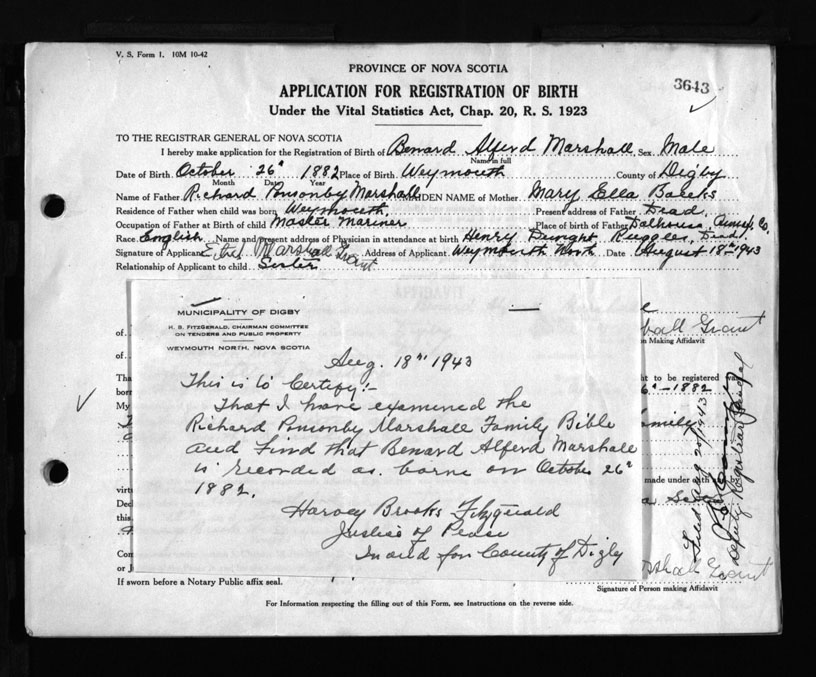 V. S. Form 1. 10M 10-42
PROVINCE OF NOVA SCOTIA
3643
APPLICATION FOR REGISTRATION OF BIRTH
Under the Vital Statistics Act, Chap. 20, R. S. 1923
TO THE REGISTRAR GENERAL OF NOVA SCOTIA
I hereby make application for the Registration of Birth of Benard Alferd Marshall Sex Male
Name in full
Date of Birth October 26th 1882 Place of Birth Weymouth County of Digby
Month Date Year
Name of Father Richard Ponsonby Marshall MAIDEN NAME of Mother Mary Ella
Residence of Father when child was born Weymouth Present address of Father Dead
Occupation of Father at Birth of child Master Mariner Place of birth of Father Dalhousie, Co.
Race English Name and present address of Physician in attendance at birth Henry Dwight Ruggles, Dead
Signature of Applicant Ethel Marshall Grant Address of Applicant Weymouth North Date August 18th 1943
Relationship of Applicant to child Sister
MUNICIPALITY OF DIGBY
H. B. FITZGERALD, CHAIRMAN COMMITTEE
ON TENDERS AND PUBLIC PROPERTY
WEYMOUTH NORTH, NOVA SCOTIA
Aug. 18th 1943
This is to Certify:-
That I have examined the
Richard Ponsonby Marshall Family Bible
and find that Benard Alferd Marshall
is recorded as borne on October 26th
1882.
Harvey Brooks Fitzgerald
Justice of Peace
In and for County of Digby
of
of
Tha
born
My
virtu
Decl
this
Com
or J
shall Grant
n Making Affidavit
ht to be registered
6th-1882
amily
made under oath
Filed Aug 20/1943
Deputy Registrar General
shall Grant
If sworn before a Notary Public affix seal.
Signature of Person making Affidavit
For Information respecting the filling out of this Form, see Instructions on the reverse side.